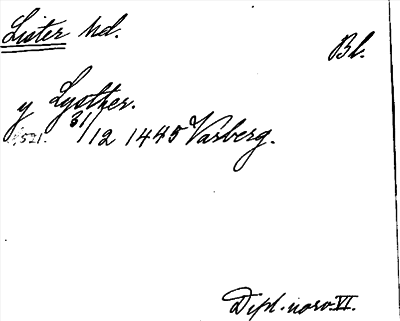 Lister hd.
Bl.
y Lystzer.
521. 31/12 1445 Varberg.
Dipl. norv. VI.